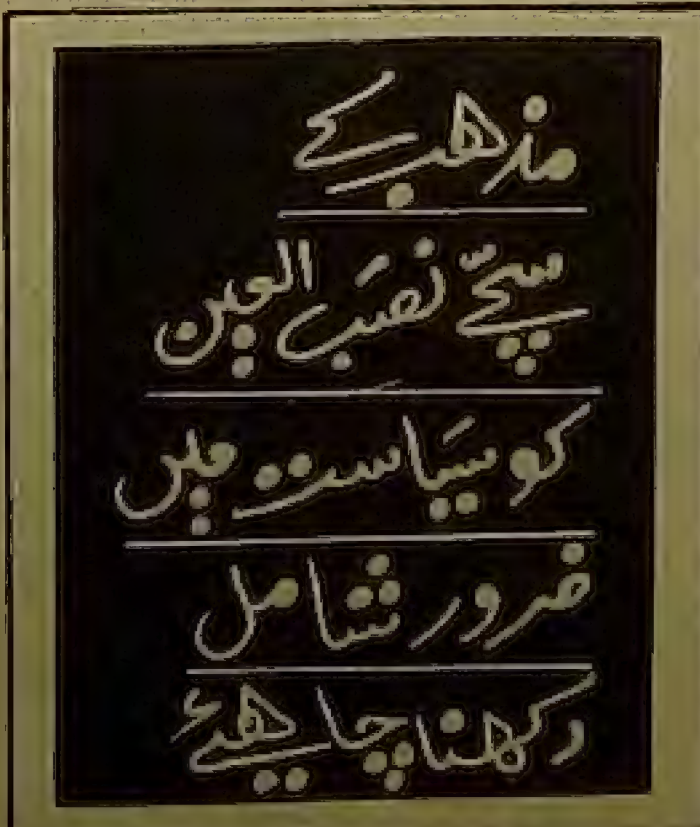 مذهب کے
سچّے نصَب العین
کو سیَاست میں
ضرور شامل
رکھنا چاہیئے